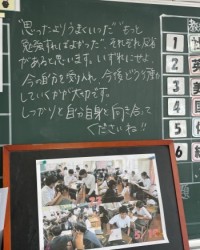 "思ったよりうまくいった" "もっと
勉強すればよかった"、それぞれ反省
があると思います。いずれにせよ、
今の自分を受け入れ、今後どう
していくかが大切です。
しっかりと自分自身と向き合って
くださいね!!
1
2 英
3 美
4 国
5 体
6 総